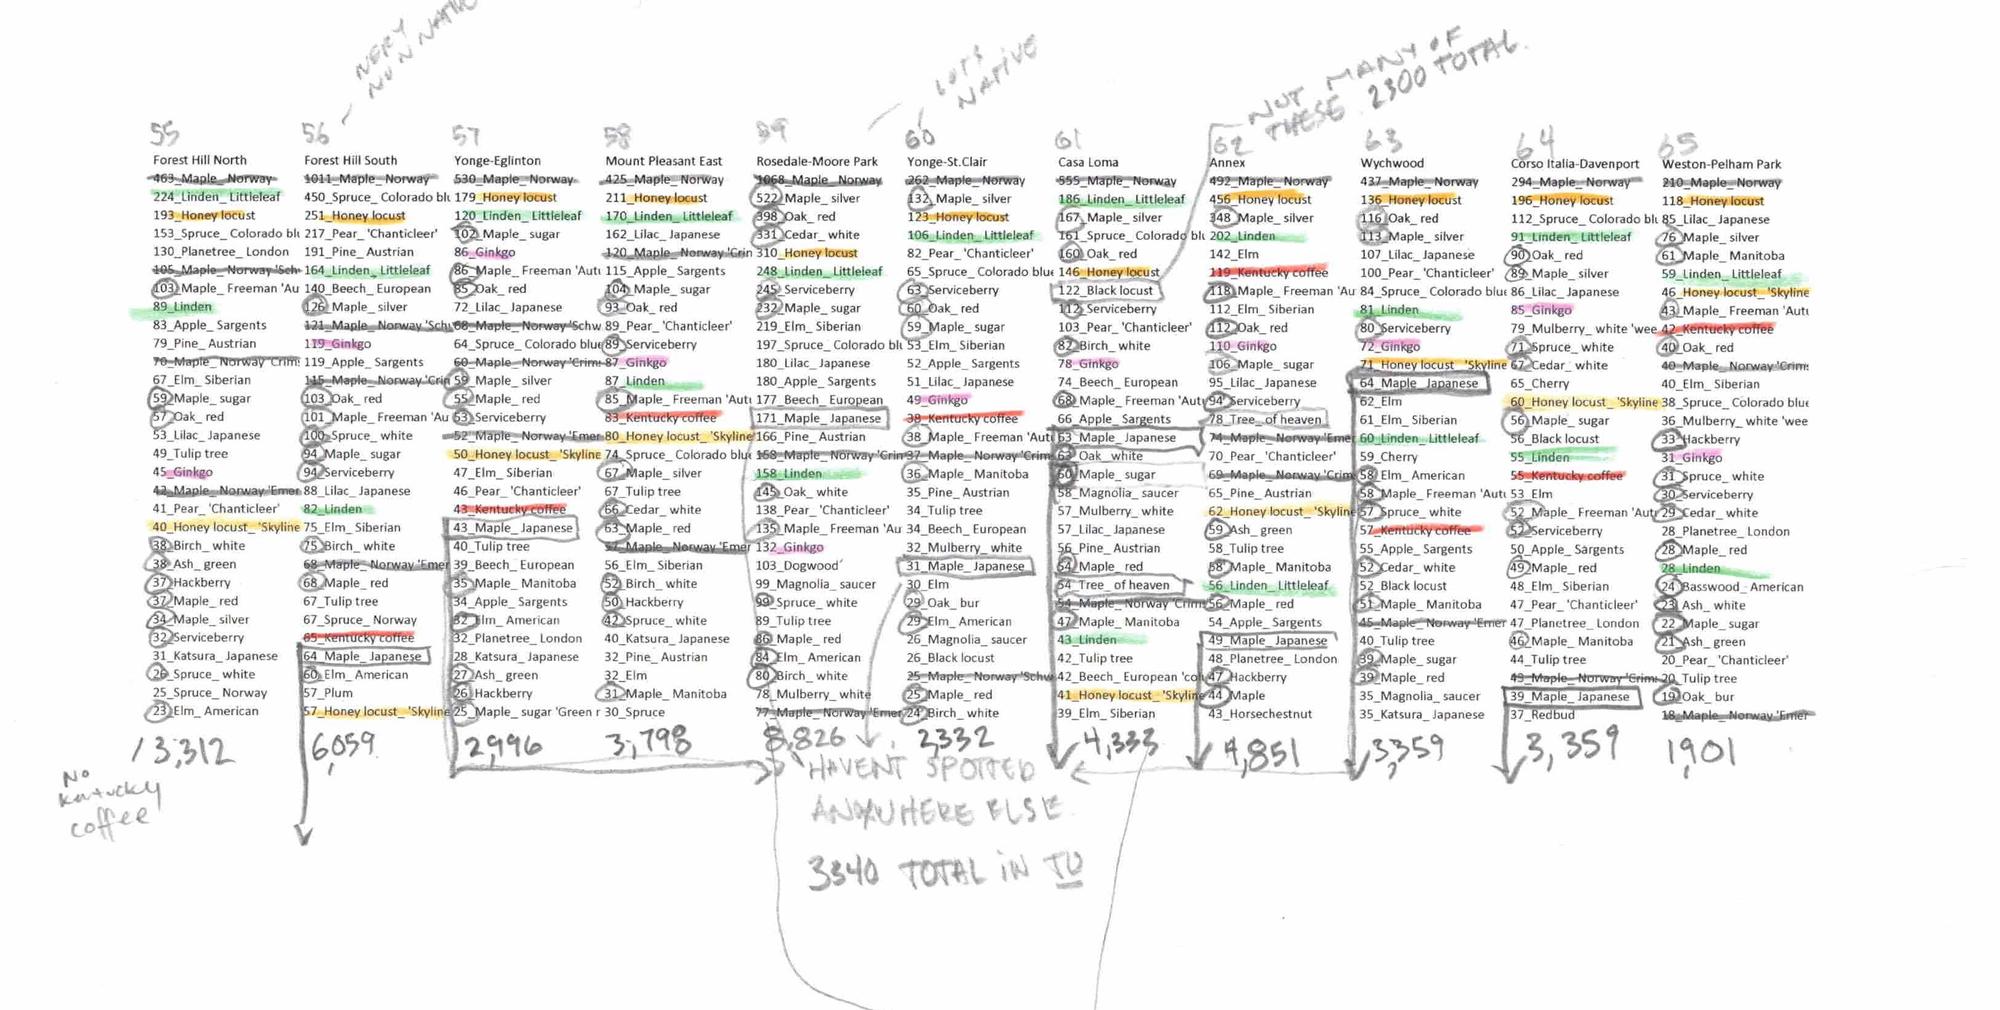 VERY
NON NATIVE
LOTS
NATIVE
NOT MANY OF
THESE. 2300 TOTAL.
55
Forest Hill North
463_Maple_ Norway
224_Linden_ Littleleaf
193_Honey locust
153_Spruce_ Colorado blu
130_Planetree_ London
105_Maple_ Norway 'Sch
103_Maple_ Freeman 'Au
89_Linden
83_Apple_ Sargents
79_Pine_ Austrian
70_Maple_ Norway 'Crim
67_Elm_ Siberian
59_Maple_ sugar
57_Oak_ red
53_Lilac_ Japanese
49_Tulip tree
45_Ginkgo
42_Maple_ Norway 'Emer
41_Pear_ 'Chanticleer'
40_Honey locust_ 'Skyline
38_Birch_ white
38_Ash_ green
37_Hackberry
37_Maple_ red
34_Maple_ silver
32_Serviceberry
31_Katsura_ Japanese
26_Spruce_ white
25_Spruce_ Norway
23_Elm_ American
3,312
No
Kentucky
coffee
56
Forest Hill South
1011_Maple_ Norway
450_Spruce_ Colorado blu
251_Honey locust
217_Pear_ 'Chanticleer'
191_Pine_ Austrian
164_Linden_ Littleleaf
140_Beech_ European
126_Maple_ silver
121_Maple_ Norway 'Schw
119_Ginkgo
119_Apple_ Sargents
115_Maple_ Norway 'Crin
103_Oak_ red
101_Maple_ Freeman 'Au
100_Spruce_ white
94_Maple_ sugar
94_Serviceberry
88_Lilac_ Japanese
82_Linden
75_Elm_ Siberian
75_Birch_ white
68_Maple_ Norway 'Emer
68_Maple_ red
67_Tulip tree
67_Spruce_ Norway
65_Kentucky coffee
64_Maple_ Japanese
60_Elm_ American
57_Plum
57_Honey locust_ 'Skyline
6,059
57
Yonge-Eglinton
530_Maple_ Norway
179_Honey locust
120_Linden_ Littleleaf
102_Maple_ sugar
86_Ginkgo
86_Maple_ Freeman 'Aut
85_Oak_ red
72_Lilac_ Japanese
68_Maple_ Norway 'Schw
64_Spruce_ Colorado blue
60_Maple_ Norway 'Crims
59_Maple_ silver
55_Maple_ red
53_Serviceberry
52_Maple_ Norway 'Emer
50_Honey locust_ 'Skyline
47_Elm_ Siberian
46_Pear_ 'Chanticleer'
43_Kentucky coffee
43_Maple_ Japanese
40_Tulip tree
39_Beech_ European
35_Maple_ Manitoba
34_Apple_ Sargents
32_Elm_ American
32_Planetree_ London
28_Katsura_ Japanese
27_Ash_ green
26_Hackberry
25_Maple_ sugar 'Green r
2,996
58
Mount Pleasant East
425_Maple_ Norway
211_Honey locust
170_Linden_ Littleleaf
162_Lilac_ Japanese
120_Maple_ Norway 'Crin
115_Apple_ Sargents
104_Maple_ sugar
93_Oak_ red
89_Pear_ 'Chanticleer'
89_Serviceberry
87_Ginkgo
87_Linden
85_Maple_ Freeman 'Aut
83_Kentucky coffee
80_Honey locust_ 'Skyline
74_Spruce_ Colorado blu
67_Maple_ silver
67_Tulip tree
66_Cedar_ white
63_Maple_ red
57_Maple_ Norway 'Emer
56_Elm_ Siberian
52_Birch_ white
50_Hackberry
42_Spruce_ white
40_Katsura_ Japanese
32_Pine_ Austrian
32_Elm
31_Maple_ Manitoba
30_Spruce
3,798
59
Rosedale-Moore Park
1068_Maple_ Norway
522_Maple_ silver
398_Oak_ red
331_Cedar_ white
310_Honey locust
248_Linden_ Littleleaf
245_Serviceberry
232_Maple_ sugar
219_Elm_ Siberian
197_Spruce_ Colorado blu
180_Lilac_ Japanese
180_Apple_ Sargents
177_Beech_ European
171_Maple_ Japanese
166_Pine_ Austrian
158_Maple_ Norway 'Crin
158_Linden
145_Oak_ white
138_Pear_ 'Chanticleer'
135_Maple_ Freeman 'Au
132_Ginkgo
103_Dogwood
99_Magnolia_ saucer
99_Spruce_ white
89_Tulip tree
86_Maple_ red
84_Elm_ American
80_Birch_ white
78_Mulberry_ white
77_Maple_ Norway 'Emer
8,826
60
Yonge-St.Clair
262_Maple_ Norway
132_Maple_ silver
123_Honey locust
106_Linden_ Littleleaf
82_Pear_ 'Chanticleer'
65_Spruce_ Colorado blue
63_Serviceberry
60_Oak_ red
59_Maple_ sugar
53_Elm_ Siberian
52_Apple_ Sargents
51_Lilac_ Japanese
49_Ginkgo
38_Kentucky coffee
38_Maple_ Freeman 'Aut
37_Maple_ Norway 'Crims
36_Maple_ Manitoba
35_Pine_ Austrian
34_Tulip tree
34_Beech_ European
32_Mulberry_ white
31_Maple_ Japanese
30_Elm
29_Oak_ bur
29_Elm_ American
26_Magnolia_ saucer
26_Black locust
25_Maple_ Norway 'Schw
25_Maple_ red
24_Birch_ white
2,332
61
Casa Loma
555_Maple_ Norway
186_Linden_ Littleleaf
167_Maple_ silver
161_Spruce_ Colorado blu
160_Oak_ red
146_Honey locust
122_Black locust
112_Serviceberry
103_Pear_ 'Chanticleer'
82_Birch_ white
78_Ginkgo
74_Beech_ European
68_Maple_ Freeman 'Aut
66_Apple_ Sargents
63_Maple_ Japanese
63_Oak_ white
60_Maple_ sugar
58_Magnolia_ saucer
57_Mulberry_ white
57_Lilac_ Japanese
56_Pine_ Austrian
54_Maple_ red
54_Tree_ of heaven
54_Maple_ Norway 'Crim
47_Maple_ Manitoba
43_Linden
42_Tulip tree
42_Beech_ European 'co
41_Honey locust_ 'Skyline
39_Elm_ Siberian
4,333
62
Annex
492_Maple_ Norway
456_Honey locust
348_Maple_ silver
202_Linden
142_Elm
119_Kentucky coffee
118_Maple_ Freeman 'Au
112_Elm_ Siberian
112_Oak_ red
110_Ginkgo
106_Maple_ sugar
95_Lilac_ Japanese
94_Serviceberry
78_Tree_ of heaven
74_Maple_ Norway 'Emer
70_Pear_ 'Chanticleer'
69_Maple_ Norway 'Crim
65_Pine_ Austrian
62_Honey locust_ 'Skyline
59_Ash_ green
58_Tulip tree
58_Maple_ Manitoba
56_Linden_ Littleleaf
56_Maple_ red
54_Apple_ Sargents
49_Maple_ Japanese
48_Planetree_ London
47_Hackberry
44_Maple
43_Horsechestnut
4,851
63
Wychwood
437_Maple_ Norway
136_Honey locust
116_Oak_ red
113_Maple_ silver
107_Lilac_ Japanese
100_Pear_ 'Chanticleer'
84_Spruce_ Colorado blue
81_Linden
80_Serviceberry
72_Ginkgo
71_Honey locust_ 'Skyline
64_Maple_ Japanese
62_Elm
61_Elm_ Siberian
60_Linden_ Littleleaf
59_Cherry
58_Elm_ American
58_Maple_ Freeman 'Aut
57_Spruce_ white
57_Kentucky coffee
55_Apple_ Sargents
52_Cedar_ white
52_Black locust
51_Maple_ Manitoba
45_Maple_ Norway 'Emer
40_Tulip tree
39_Maple_ sugar
39_Maple_ red
35_Magnolia_ saucer
35_Katsura_ Japanese
3,359
64
Corso Italia-Davenport
294_Maple_ Norway
196_Honey locust
112_Spruce_ Colorado blu
91_Linden_ Littleleaf
90_Oak_ red
89_Maple_ silver
86_Lilac_ Japanese
85_Ginkgo
79_Mulberry_ white 'wee
71_Spruce_ white
67_Cedar_ white
65_Cherry
60_Honey locust_ 'Skyline
56_Maple_ sugar
56_Black locust
55_Linden
55_Kentucky coffee
53_Elm
52_Maple_ Freeman 'Aut
52_Serviceberry
50_Apple_ Sargents
49_Maple_ red
48_Elm_ Siberian
47_Pear_ 'Chanticleer'
47_Planetree_ London
46_Maple_ Manitoba
44_Tulip tree
43_Maple_ Norway 'Crim
39_Maple_ Japanese
37_Redbud
3,359
65
Weston-Pelham Park
210_Maple_ Norway
118_Honey locust
85_Lilac_ Japanese
76_Maple_ silver
61_Maple_ Manitoba
59_Linden_ Littleleaf
46_Honey locust_ 'Skyline
43_Maple_ Freeman 'Aut
42_Kentucky coffee
40_Oak_ red
40_Maple_ Norway 'Crim
40_Elm_ Siberian
38_Spruce_ Colorado blue
36_Mulberry_ white 'wee
33_Hackberry
31_Ginkgo
31_Spruce_ white
30_Serviceberry
29_Cedar_ white
28_Planetree_ London
28_Maple_ red
28_Linden
24_Basswood_ American
23_Ash_ white
22_Maple_ sugar
21_Ash_ green
20_Pear_ 'Chanticleer'
20_Tulip tree
19_Oak_ bur
18_Maple_ Norway 'Emer
1,901
HAVENT SPOTTED
ANYWHERE ELSE
3340 TOTAL IN TO